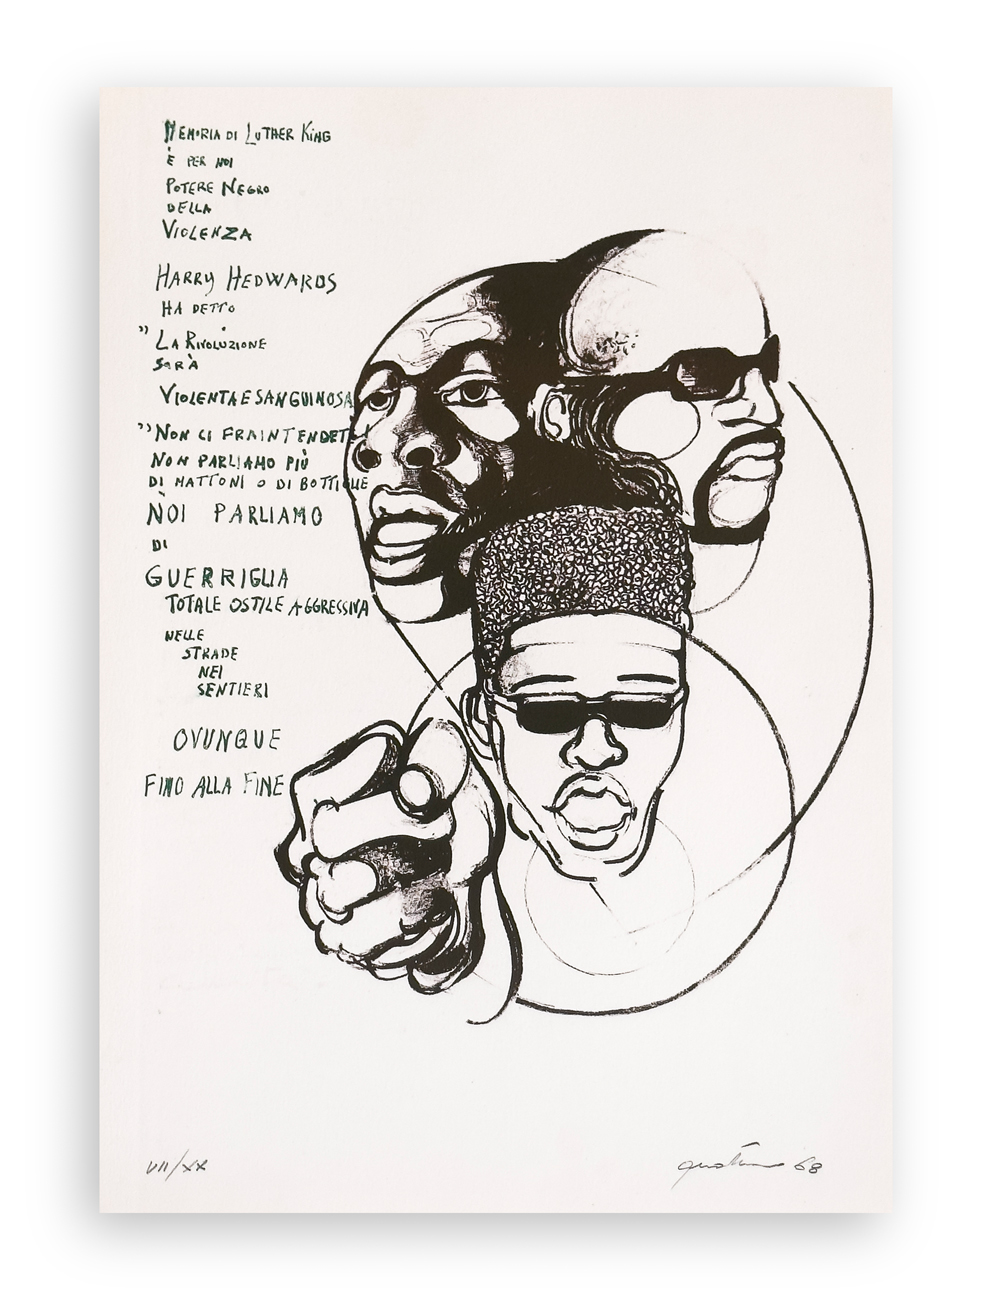 MEMORIA DI LUTHER KING
È PER NOI
POTERE NEGRO
DELLA
VIOLENZA
HARRY HEDWARDS
HA DETTO
"LA RIVOLUZIONE
SARÀ
VIOLENTA E SANGUINOSA
"NON CI FRAINTENDETE
NON PARLIAMO PIÙ
DI MATTONI O DI BOTTIGLIE
NOI PARLIAMO
DI
GUERRIGLIA
TOTALE OSTILE AGGRESSIVA
NELLE
STRADE
NEI
SENTIERI
OVUNQUE
FINO ALLA FINE
VII/XX
68